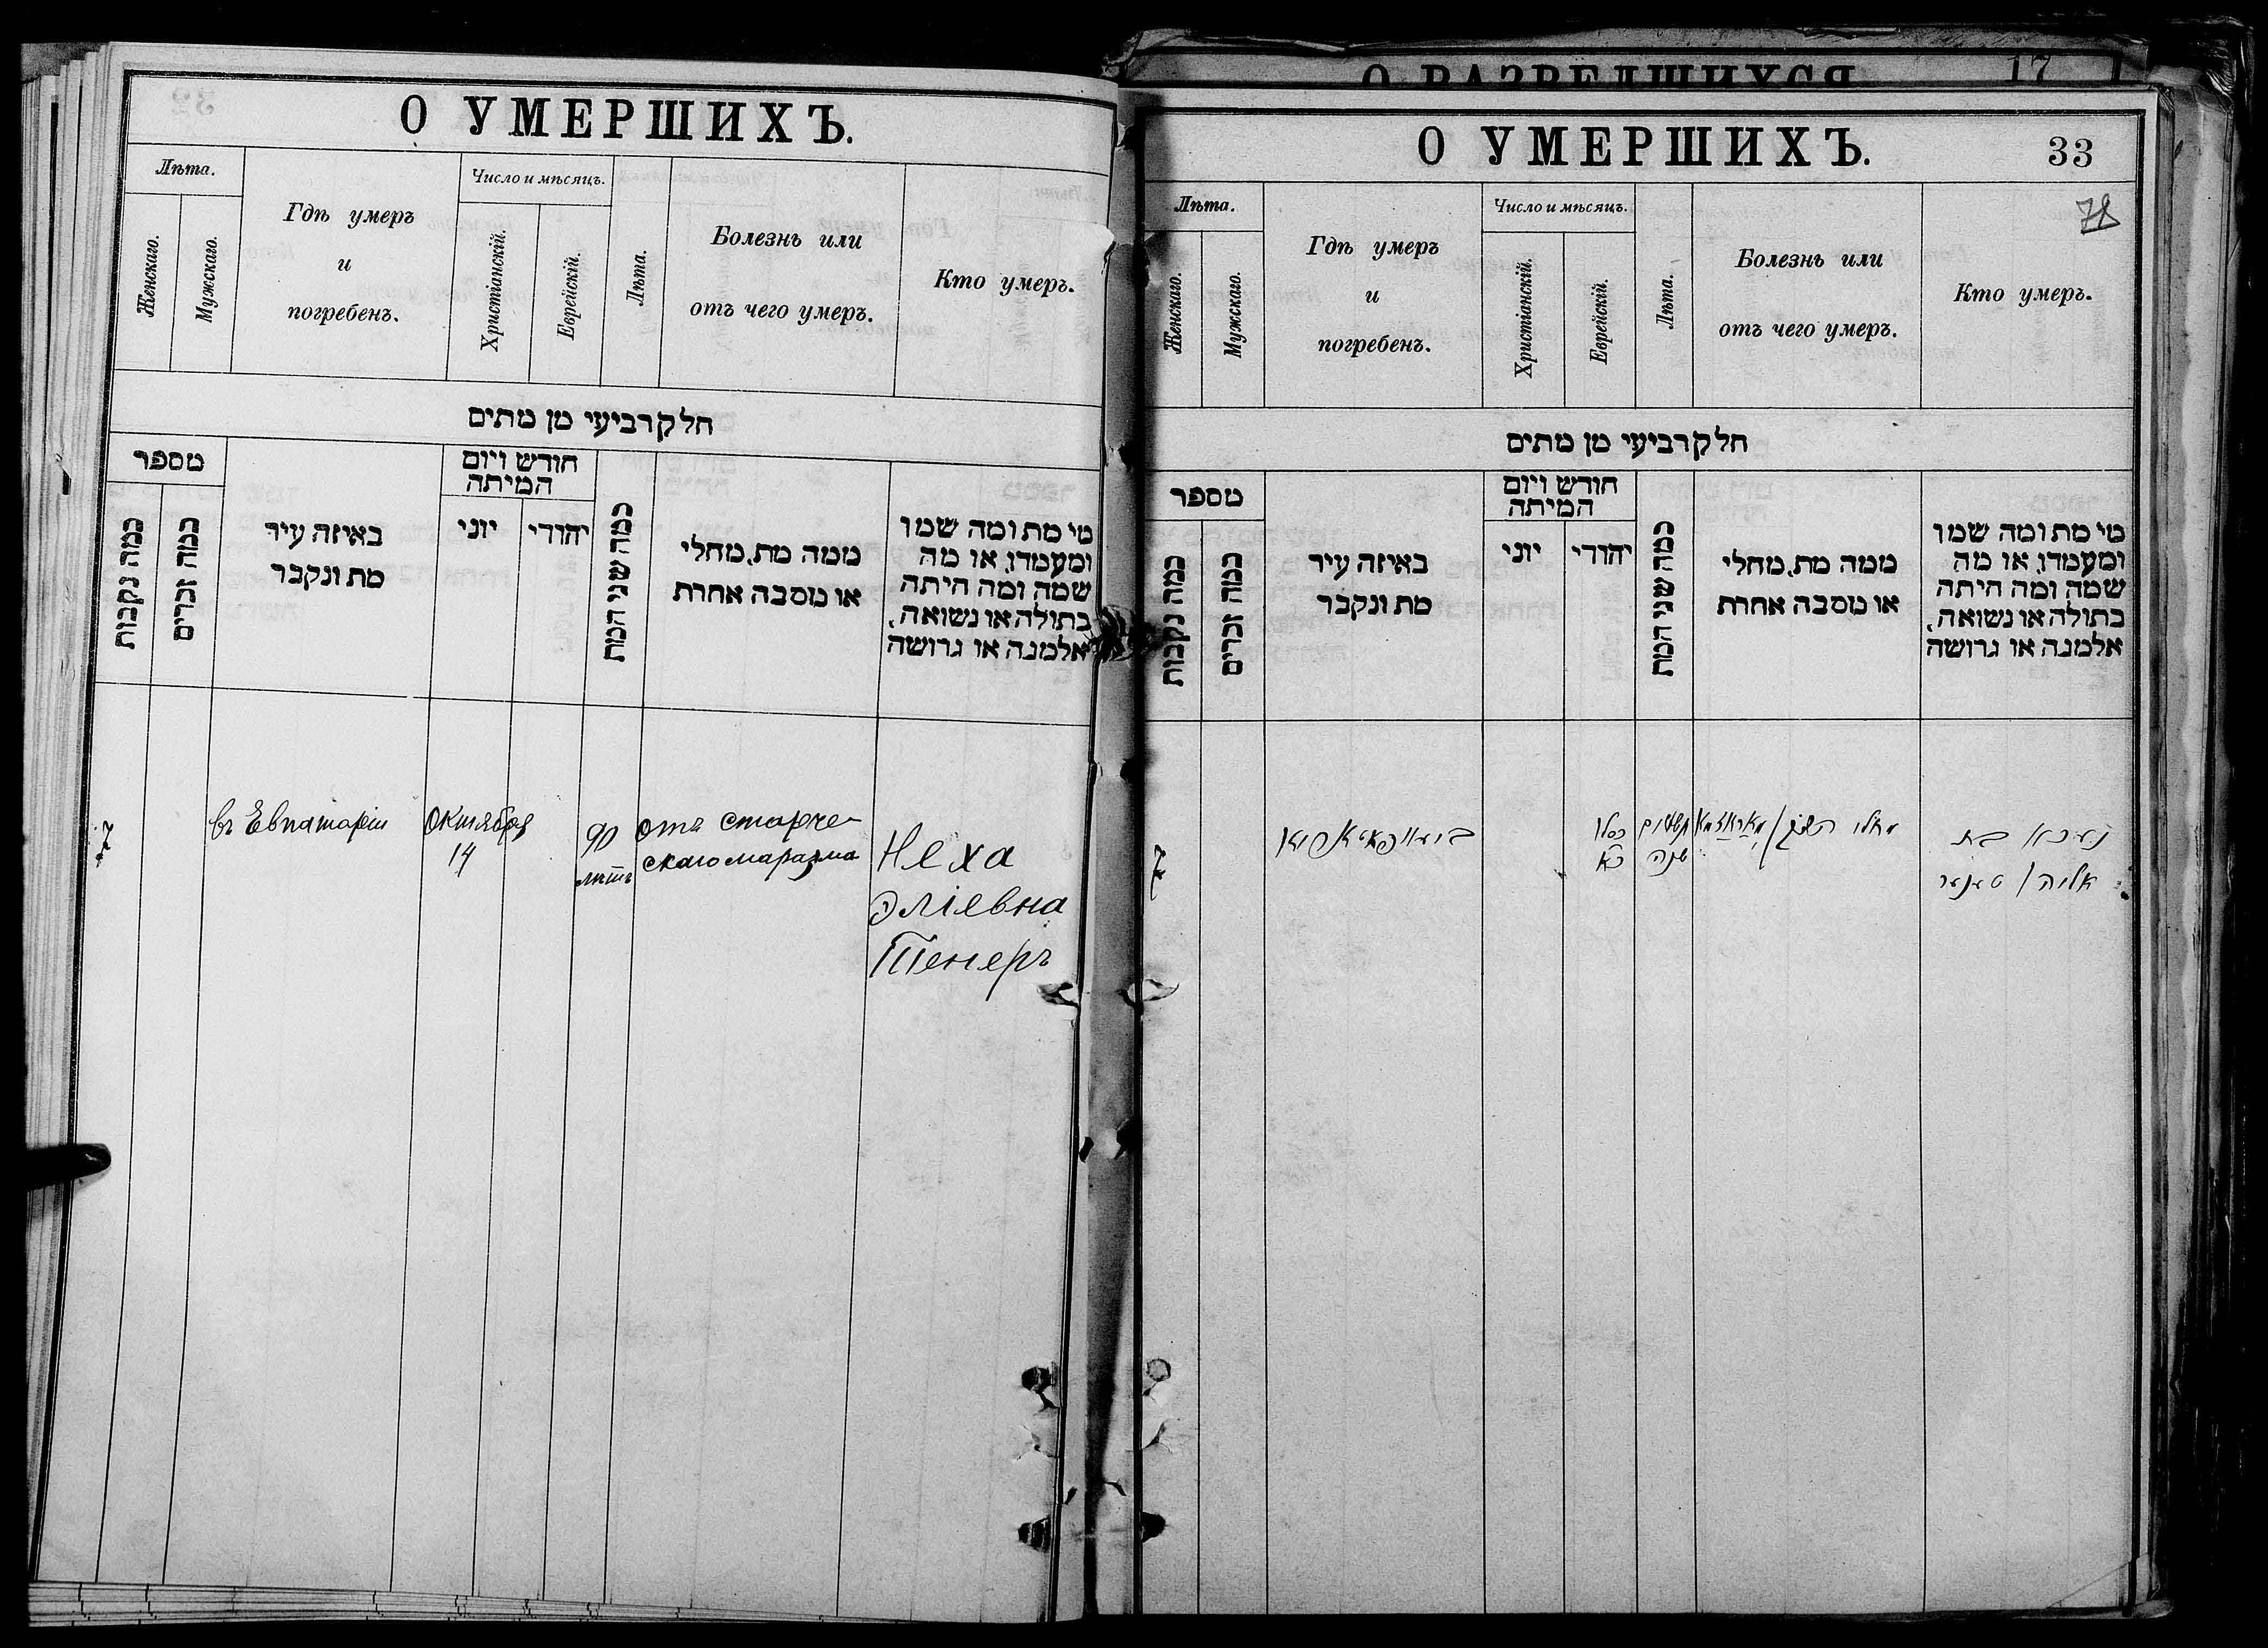 О УМЕРШИХЪ.
Лѣта.
Женскаго.
Мужскаго.
Гдѣ умеръ
и
погребенъ.
Число и мѣсяцъ.
Христіанскій.
Еврейскій.
Лѣта.
Болезнь или
отъ чего умеръ.
Кто умеръ.
חלק רביעי מן מתים
מספר
כמה נקבות
כמה זכרים
באיזה עיר
מת ונקבר
חודש ויום
המיתה
יוני
יהודי
כמה שני המת
ממה מת, מחלי
או מסבה אחרת
מי מת ומה שמו
ומעמדו, או מה
שמה ומה היתה
בתולה או נשואה,
אלמנה או גרושה
7
въ Евпаторіи
Октября
14
90
лѣтъ
отъ старче-
скаго маразма
Неха
Эліевна
Тенеръ
О РАЗВЕДШИХСЯ
17
О УМЕРШИХЪ.
33
78
Лѣта.
Женскаго.
Мужскаго.
Гдѣ умеръ
и
погребенъ.
Число и мѣсяцъ.
Христіанскій.
Еврейскій.
Лѣта.
Болезнь или
отъ чего умеръ.
Кто умеръ.
חלק רביעי מן מתים
מספר
כמה נקבות
כמה זכרים
באיזה עיר
מת ונקבר
חודש ויום
המיתה
יוני
יהודי
כמה שני המת
ממה מת, מחלי
או מסבה אחרת
מי מת ומה שמו
ומעמדו, או מה
שמה ומה היתה
בתולה או נשואה,
אלמנה או גרושה
7
כסלו
תשעים
שנה
מחלי
בת
אליה טענער